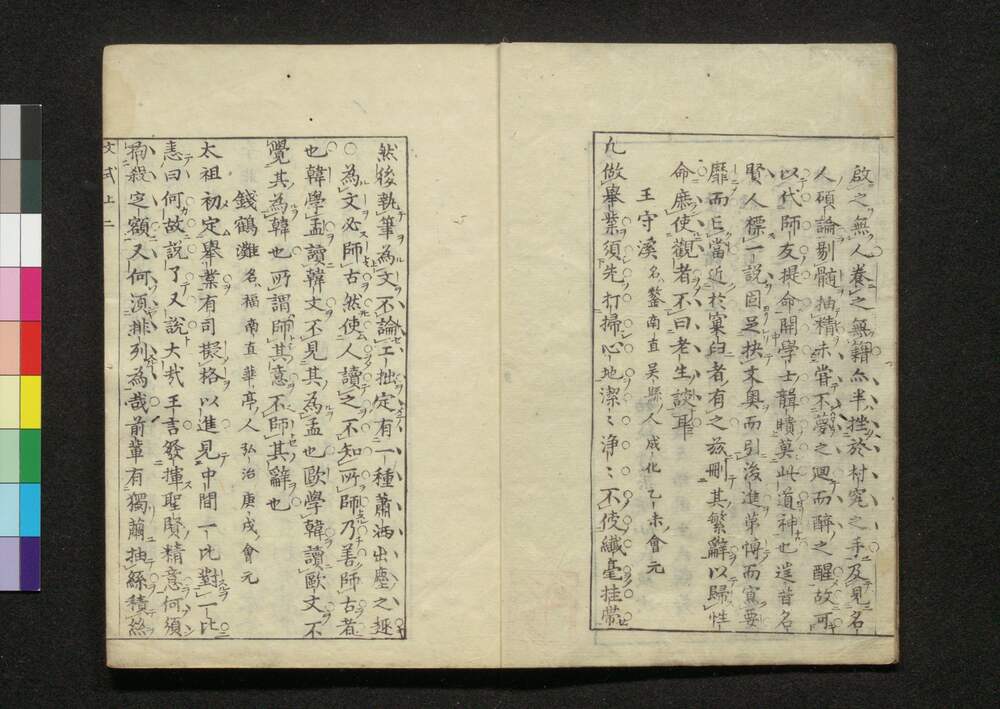 啟之無人養之無籍亦半挫於村究之手及見名
人碩論剔髓抽精未嘗不夢之廻而醉之醒故可
以代師友提命開學士韻牘莫此道神也迨昔名
賢人標一說固足抉文奥而引後進第博而寡要
靡而已當近於窠臼者有之茲刪其繁辭以歸性
命庶使觀者不曰老生談耳
王守溪名鏊南直吳縣人成化乙未會元
凡做舉業須先打掃心地潔〻淨〻不使纖毫挂帶
然後執筆為文不論工拙定有一種蕭洒出塵之趣
為文必師古然使人讀之不知所師乃善師古者
也韓學孟讀韓文不見其為孟也歐學韓讀歐文不
覺其為韓也所謂師其意不師其辭也
錢鶴灘名福南直華亭人弘治庚戌會元
太祖初定舉業有司擬格以進見中間一比對一比
恚曰何故說了又說大哉王言發揮聖賢精意何須
拘殺定額又何須排列為哉前輩有獨繭抽絲積絲
文式上二